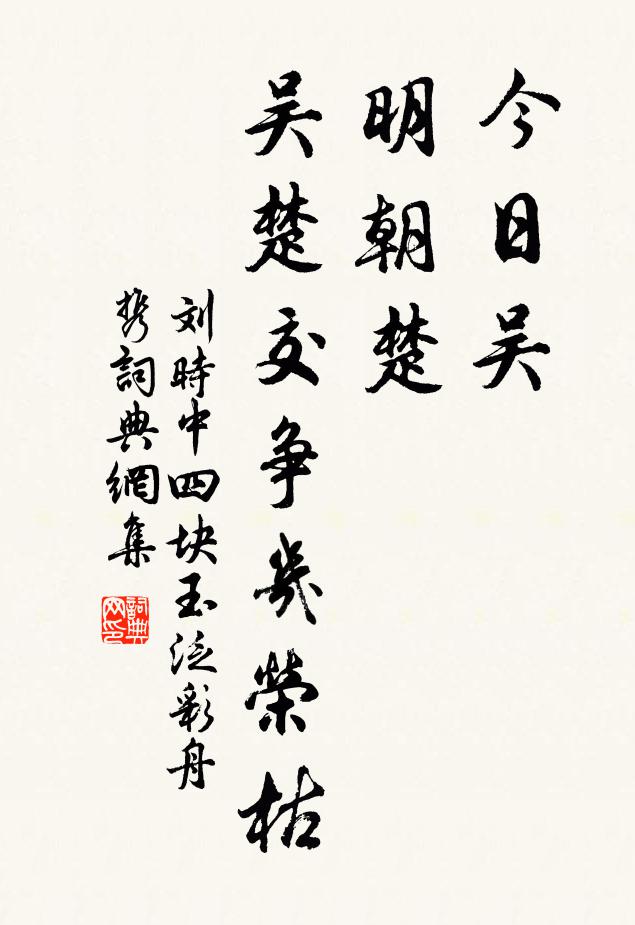 今日吴
明朝楚
吴楚交争幾榮枯
刘時中四块玉泛彩舟
携詞典網集
詞典网印